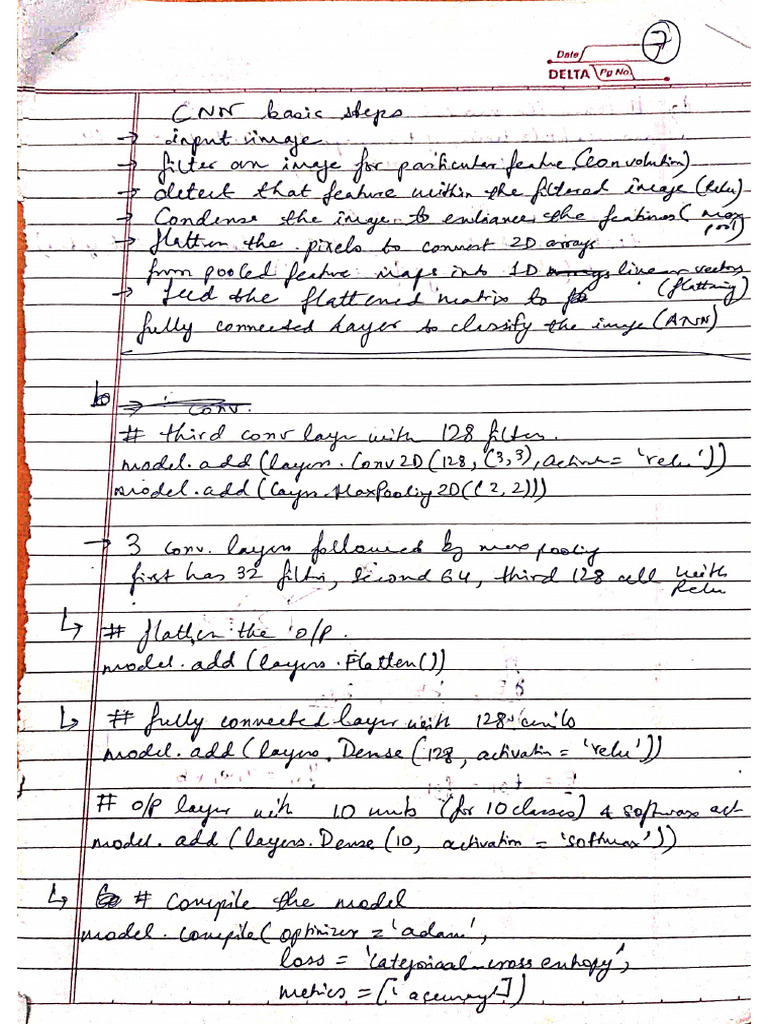 Date
7
DELTA Pg No.
CNN basic steps
→ input image
→ filter an image for particular feature (convolution)
→ detect that feature within the filtered image (Relu)
→ Condense the image to enhance the features (max pool)
→ flatten the pixels to convert 2D arrays
from pooled feature maps into 1D arrays linear vectors
(flattning)
→ feed the flattened matrix to
fully connected layer to classify the image (ANN)
→ conv.
# third conv layer with 128 filters.
model.add(layers.Conv2D(128, (3,3), activn = 'relu'))
model.add(layers.MaxPooling2D((2,2)))
→ 3 conv. layers followed by max pooling
first has 32 filtrs, second 64, third 128 all with Relu
↳ # flatten the o/p.
model.add(layers.Flatten())
↳ # fully connected layer with 128 units
model.add(layers.Dense(128, activatin = 'relu'))
# o/p layer with 10 units (for 10 classes) & softmax act
model.add(layers.Dense(10, activation = 'softmax'))
↳ # Compile the model
model.compile(optimizer = 'adam',
loss = 'categorical_crossentropy',
metrics = ['accuracy'])